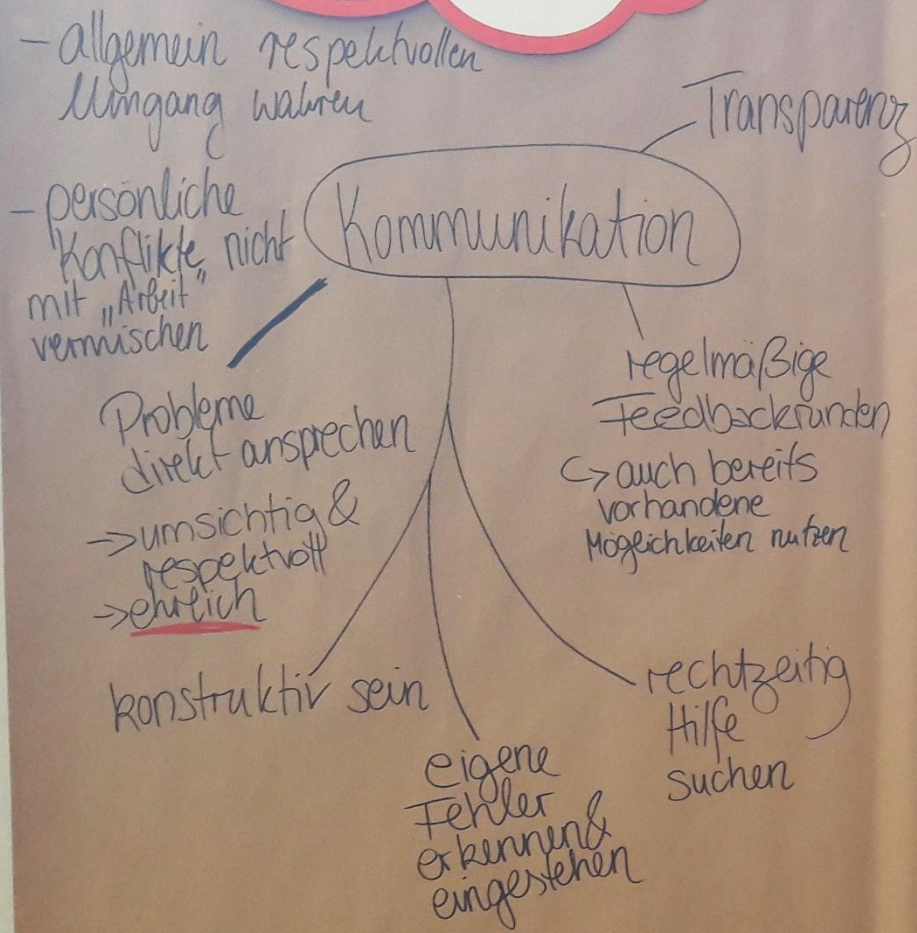 - allgemein respektvollen
Umgang wahren
Transparenz
- persönliche
Konflikte nicht
mit „Arbeit"
vermischen
Kommunikation
Probleme
direkt ansprechen
-> umsichtig &
respektvoll
-> ehrlich
regelmäßige
Feedbackrunden
↪ auch bereits
vorhandene
Möglichkeiten nutzen
konstruktiv sein
eigene
Fehler
erkennen &
eingestehen
rechtzeitig
Hilfe
suchen